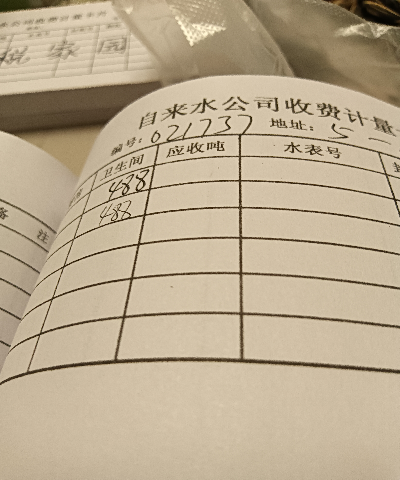 桃家园
自来水公司收费计量
编号: 021737 地址: 5-
卫生间 应收吨 水表号
488
488
备 注